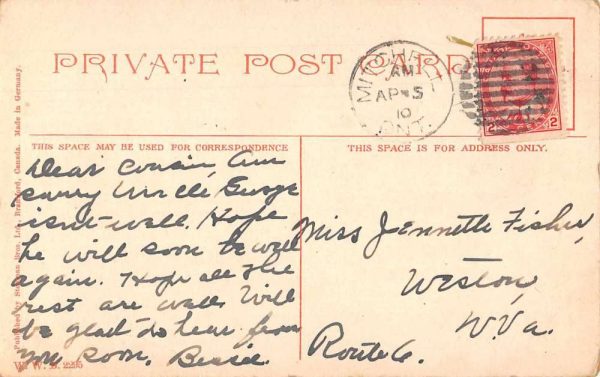 PRIVATE POST CARD
MITCHELL
AM
AP 5
10
ONT.
2 2
THIS SPACE MAY BE USED FOR CORRESPONDENCE
THIS SPACE IS FOR ADDRESS ONLY.
Dear Cousin, Am
sorry Uncle George
isnt well. Hope
he will soon be well
again. Hope all the
rest are well. Will
be glad to hear from
you soon. Bessie
Miss Jennette Fisher,
Weston,
W.Va.
Route 6.
Published by Bros. Ltd., Brantford, Canada. Made in Germany.
W. W. 2295